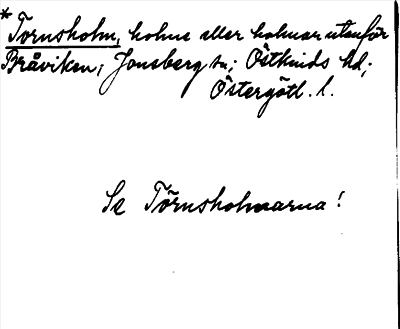 * Tornsholm, holme eller holmar utanför
Bråviken; Jonsberg sn; Östkinds hd;
Östergötl. l.
Se Törnsholmarna!